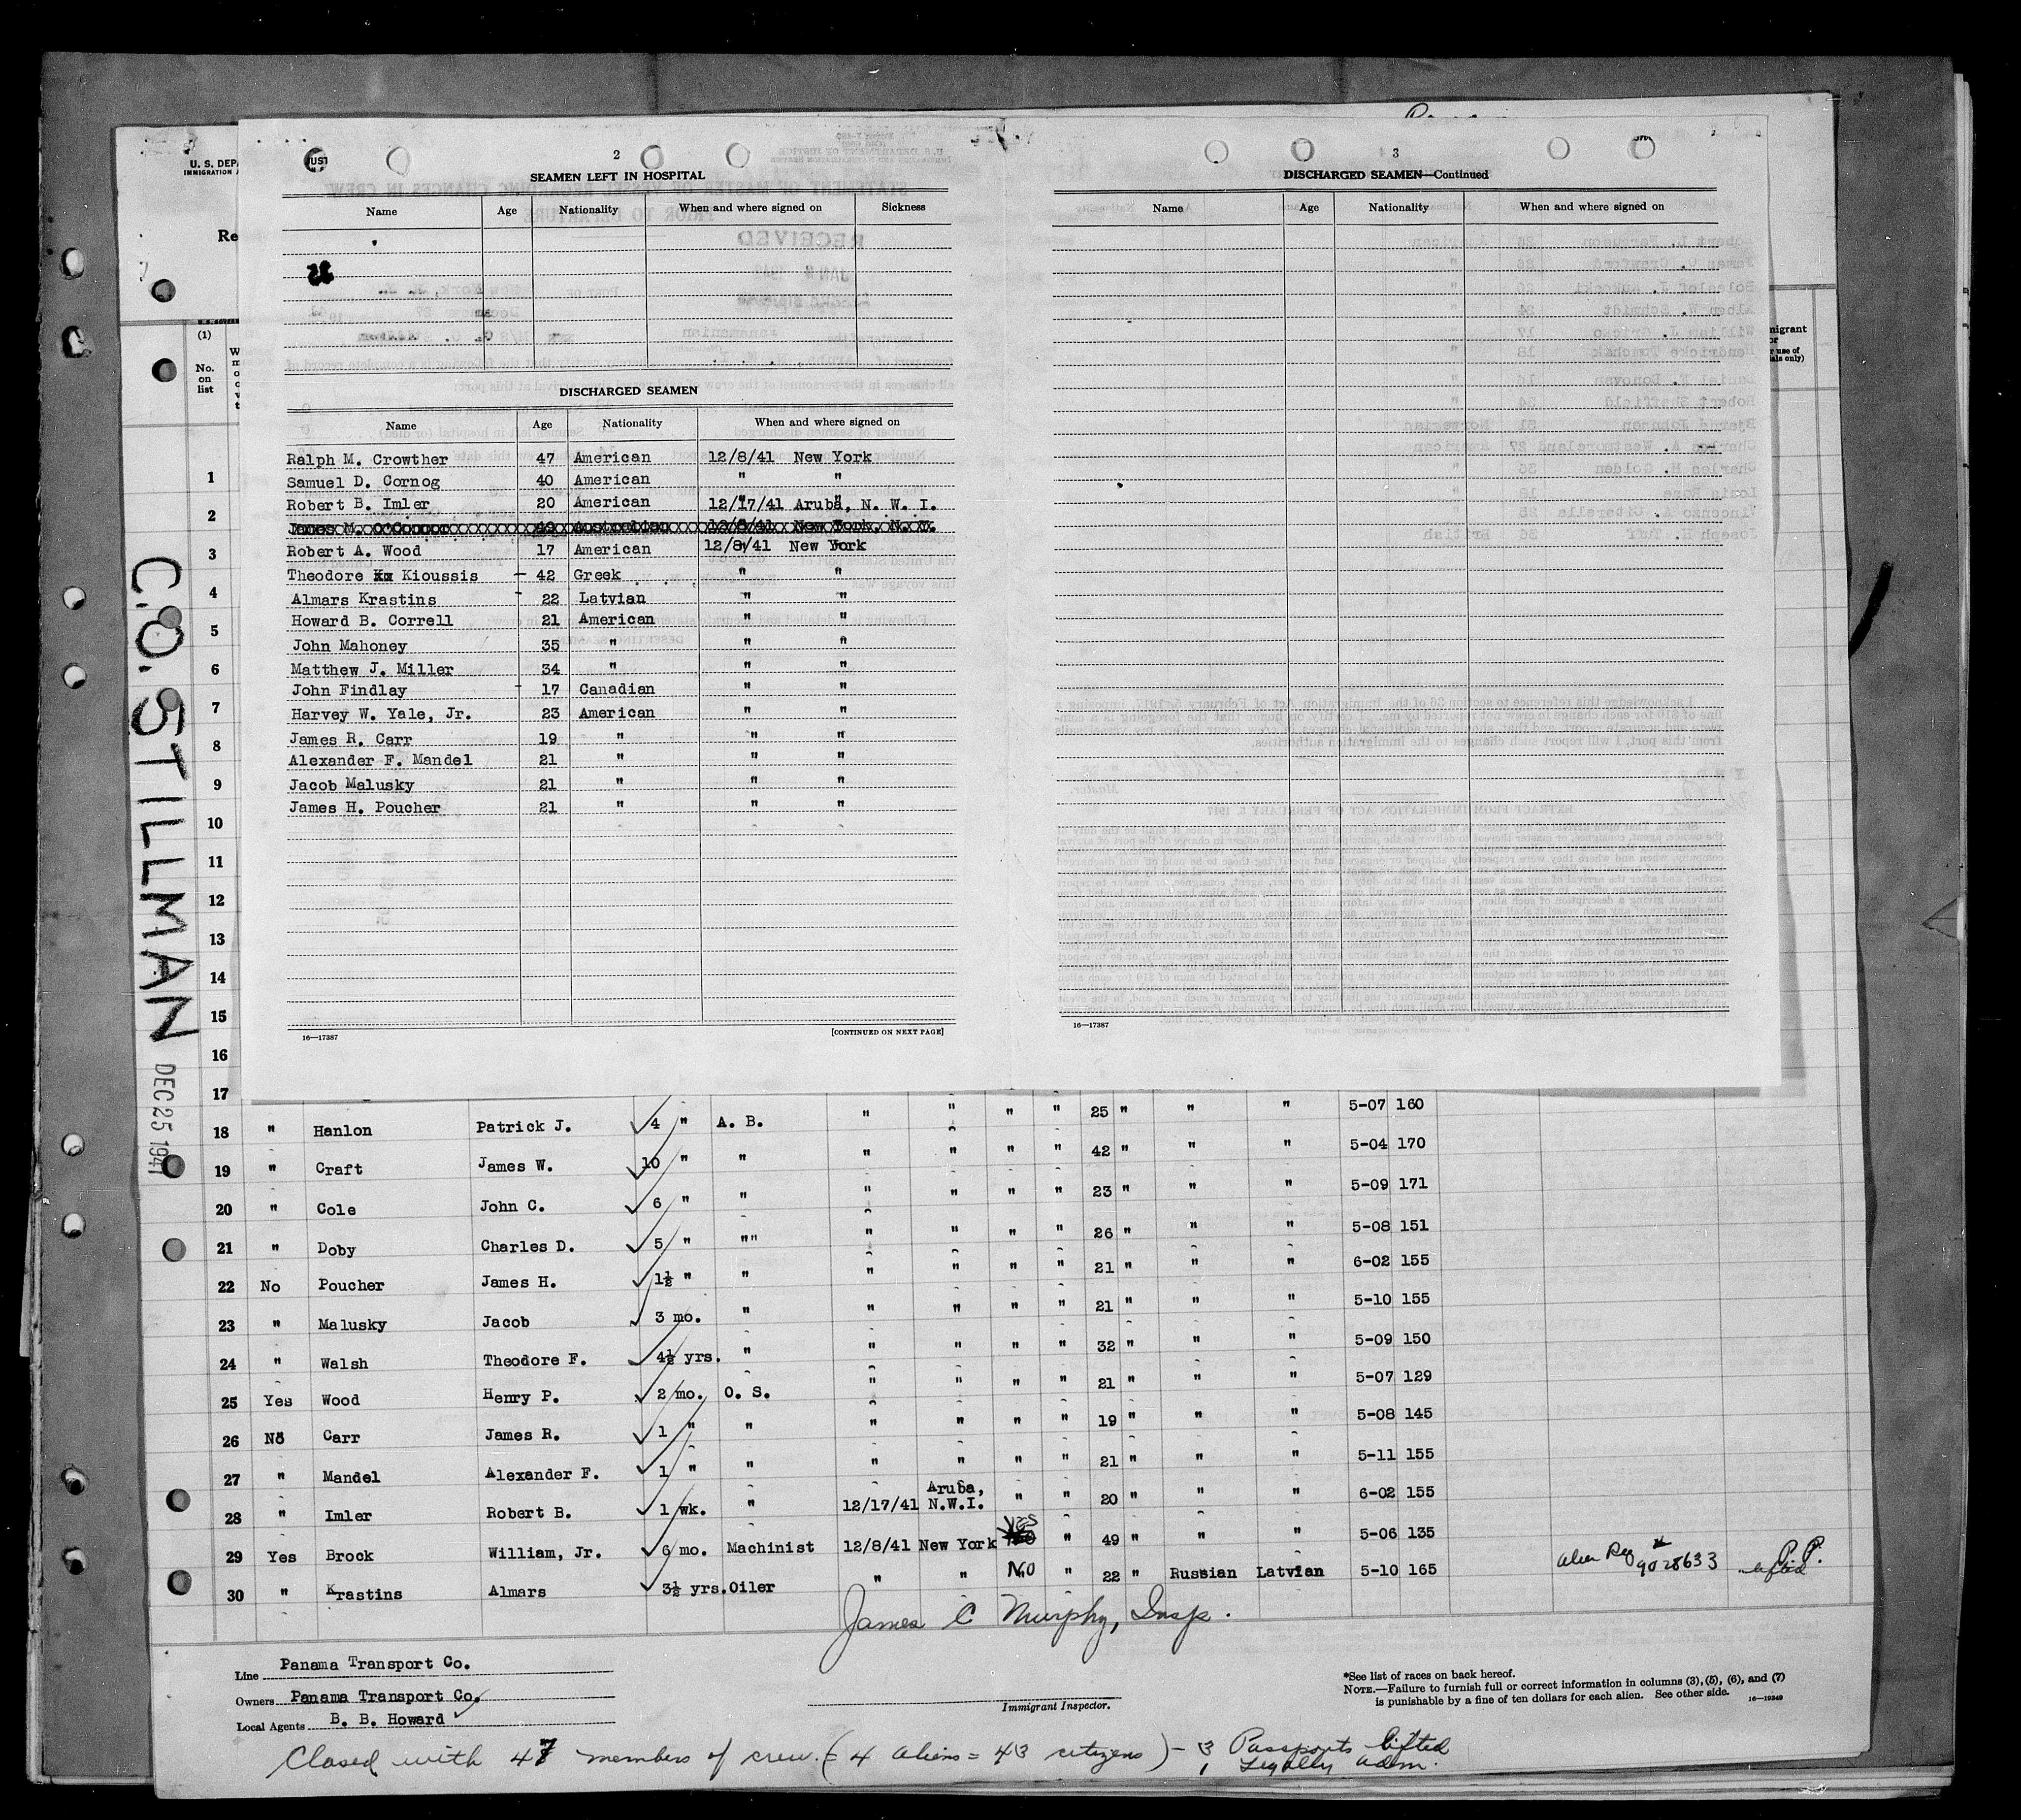 U. S. DEPA
IMMIGRATION A
Re
C.O. STILLMAN
DEC 25 1941
2
SEAMEN LEFT IN HOSPITAL
Name Age Nationality When and where signed on Sickness
DISCHARGED SEAMEN
Name Age Nationality When and where signed on
Ralph M. Crowther 47 American 12/8/41 New York
Samuel D. Cornog 40 American " "
Robert B. Imler 20 American 12/17/41 Aruba, N. W. I.
James M. O'Connor 49 Australian 12/8/41 New York, N.Y.
Robert A. Wood 17 American 12/8/41 New York
Theodore Kioussis 42 Greek " "
Almars Krastins 22 Latvian " "
Howard B. Correll 21 American " "
John Mahoney 35 " " "
Matthew J. Miller 34 " " "
John Findlay 17 Canadian " "
Harvey W. Yale, Jr. 23 American " "
James R. Carr 19 " " "
Alexander F. Mandel 21 " " "
Jacob Malusky 21 " " "
James H. Poucher 21 " " "
16—17387 [CONTINUED ON NEXT PAGE]
3
DISCHARGED SEAMEN—Continued
Name Age Nationality When and where signed on
16—17387
(1)
No. on list
1
2
3
4
5
6
7
8
9
10
11
12
13
14
15
16
17
18 " Hanlon Patrick J. 4 " A. B. " " " " 25 " " " 5-07 160
19 " Craft James W. 10 " " " " " " 42 " " " 5-04 170
20 " Cole John C. 6 " " " " " " 23 " " " 5-09 171
21 " Doby Charles D. 5 " "" " " " " 26 " " " 5-08 151
22 No Poucher James H. 1½ " " " " " " 21 " " " 6-02 155
23 " Malusky Jacob 3 mo. " " " " " 21 " " " 5-10 155
24 " Walsh Theodore F. 4½ yrs. " " " " " 32 " " " 5-09 150
25 Yes Wood Henry P. 2 mo. O. S. " " " " 21 " " " 5-07 129
26 No Carr James R. 1 " " " " " " 19 " " " 5-08 145
27 " Mandel Alexander F. 1 " " " " " " 21 " " " 5-11 155
28 " Imler Robert B. 1 wk. " 12/17/41 Aruba, N.W.I. " " 20 " " " 6-02 155
29 Yes Brock William, Jr. 6 mo. Machinist 12/8/41 New York Yes " 49 " " " 5-06 135
30 " Krastins Almars 3½ yrs. Oiler " " No " 22 " Russian Latvian 5-10 165 Alien Reg # 9028633 P.P. lifted
James C Murphy, Insp.
Line Panama Transport Co.
Owners Panama Transport Co.
Local Agents B. B. Howard
Immigrant Inspector.
*See list of races on back hereof.
NOTE.—Failure to furnish full or correct information in columns (3), (5), (6), and (7)
is punishable by a fine of ten dollars for each alien. See other side. 16—19349
Closed with 47 members of crew. (= 4 aliens = 43 citizens) - 3 Passports lifted
1 Legally Adm.